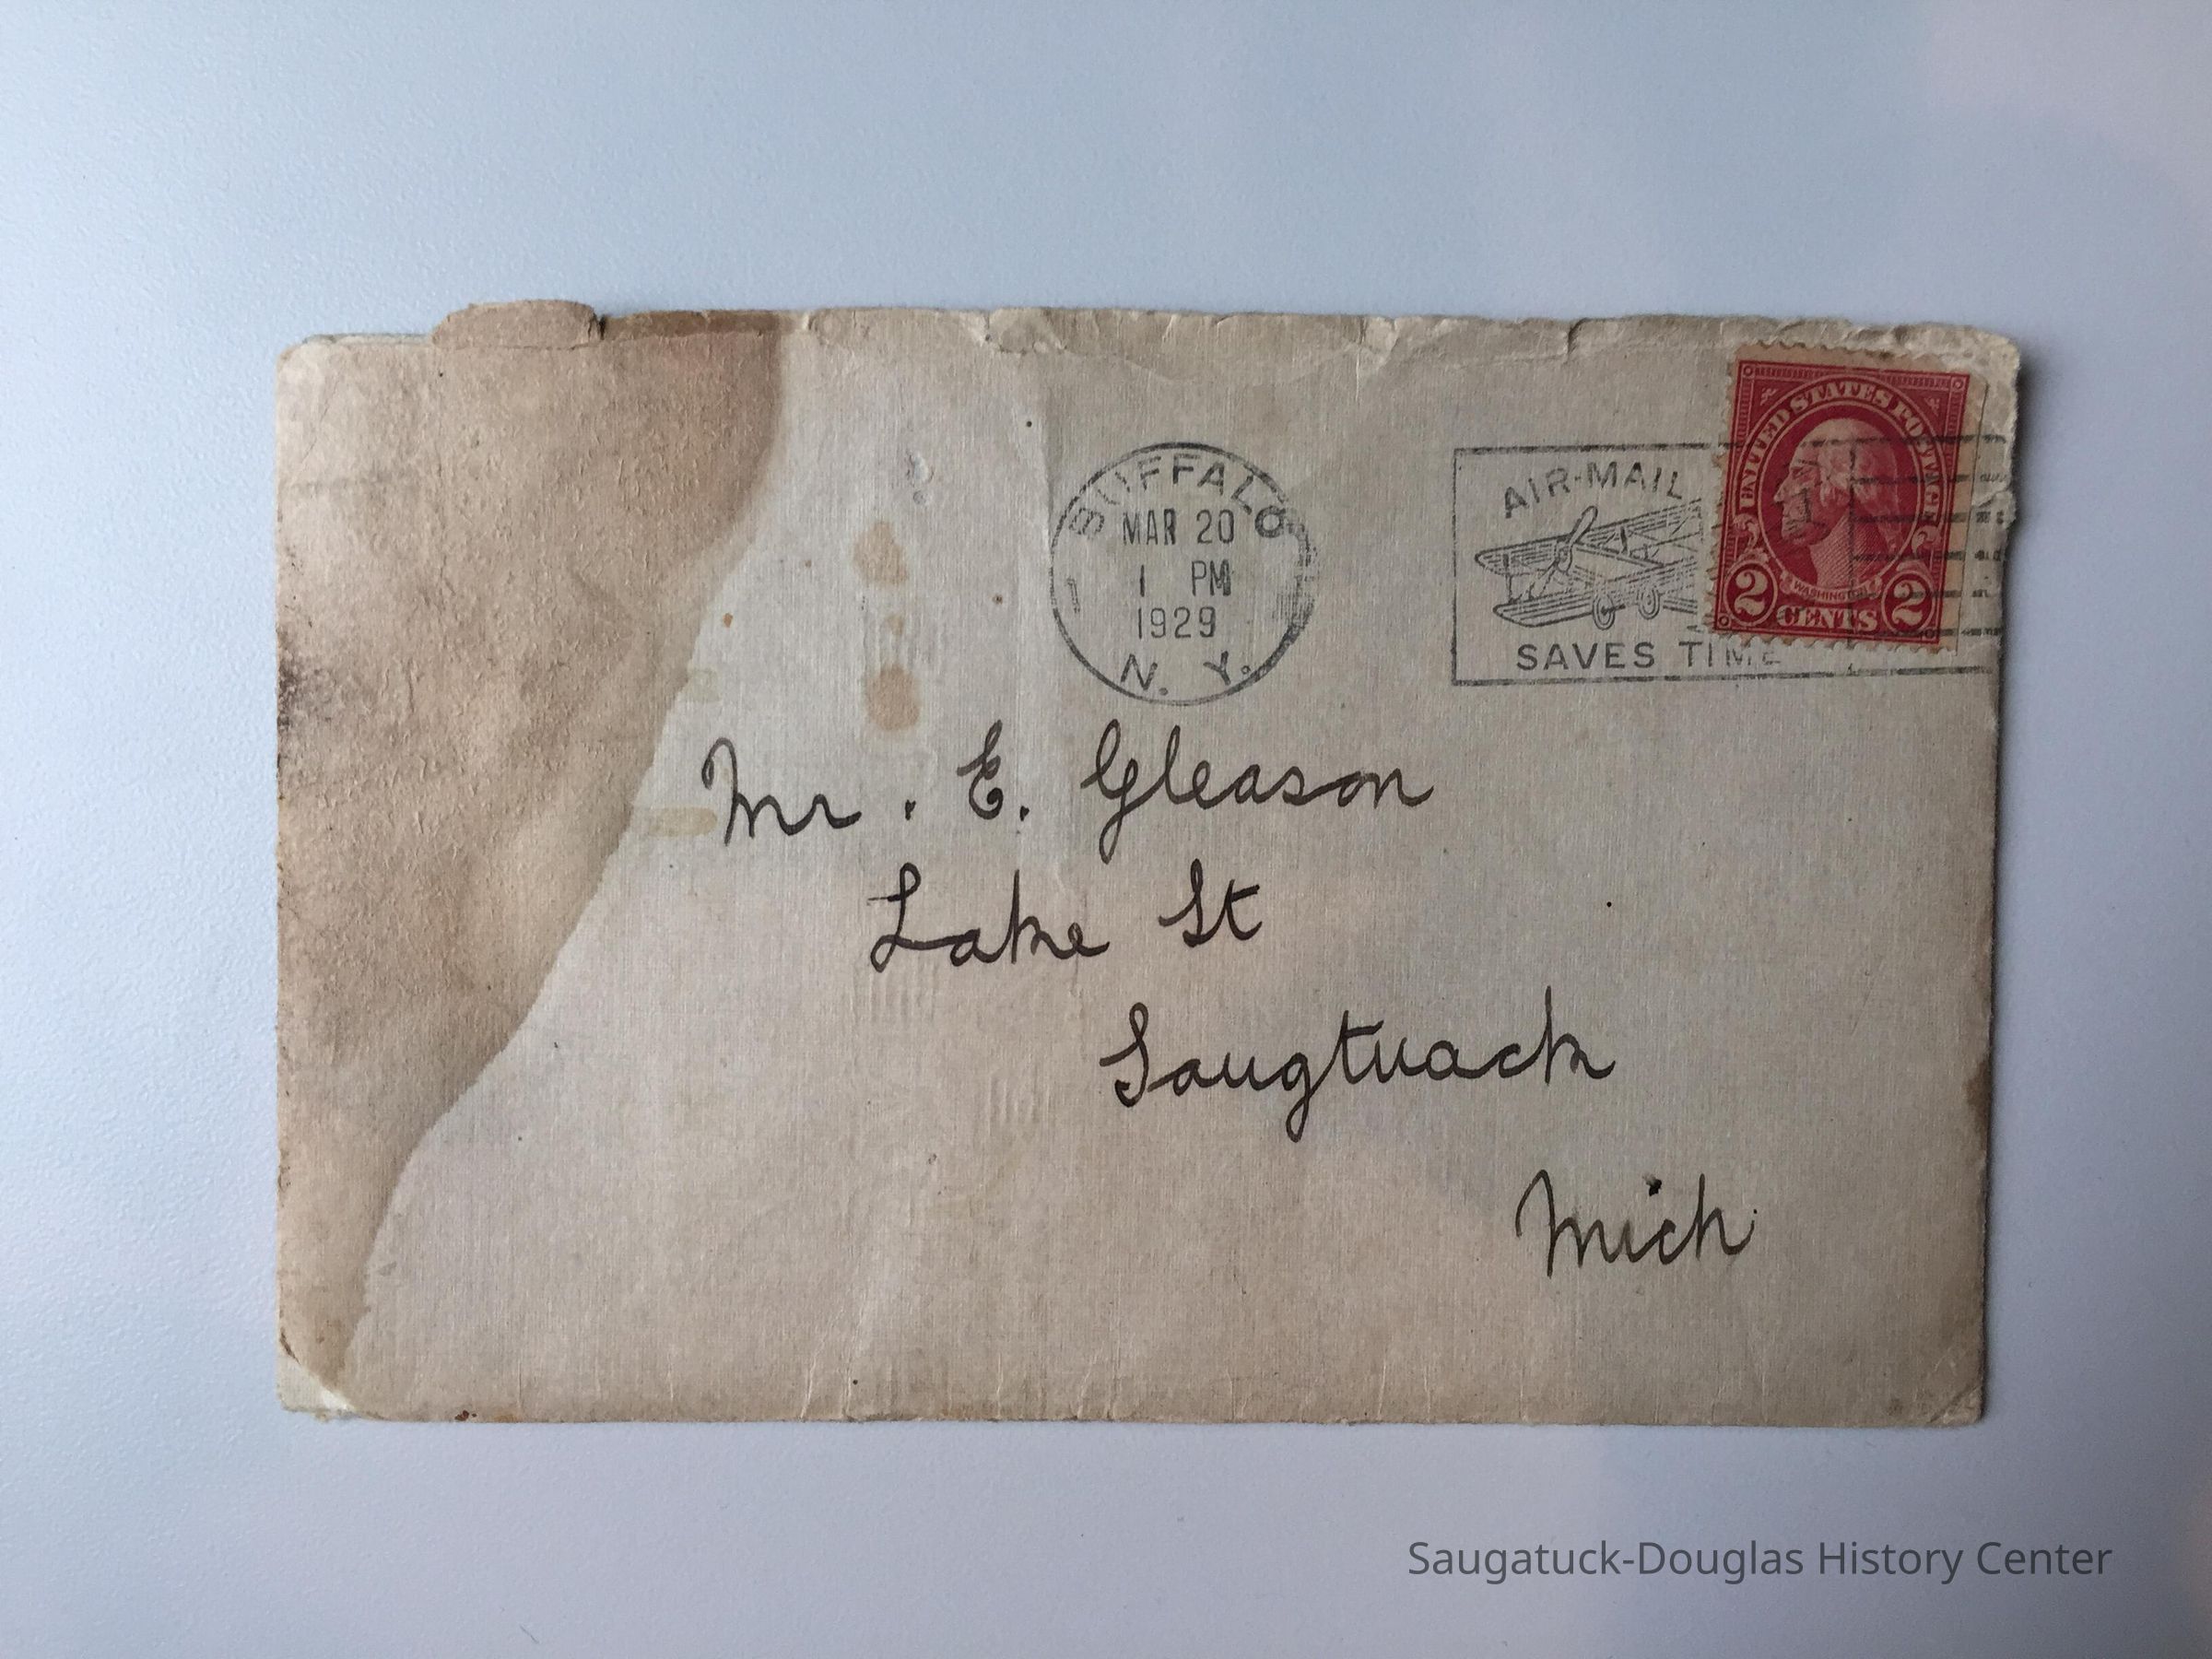 BUFFALO
MAR 20
1 PM
1929
N. Y.
1
AIR-MAIL
SAVES TIME
UNITED STATES POSTAGE
WASHINGTON
2 CENTS 2
Mr. E. Gleason
Lake St
Saugtuack
Mich
Saugatuck-Douglas History Center